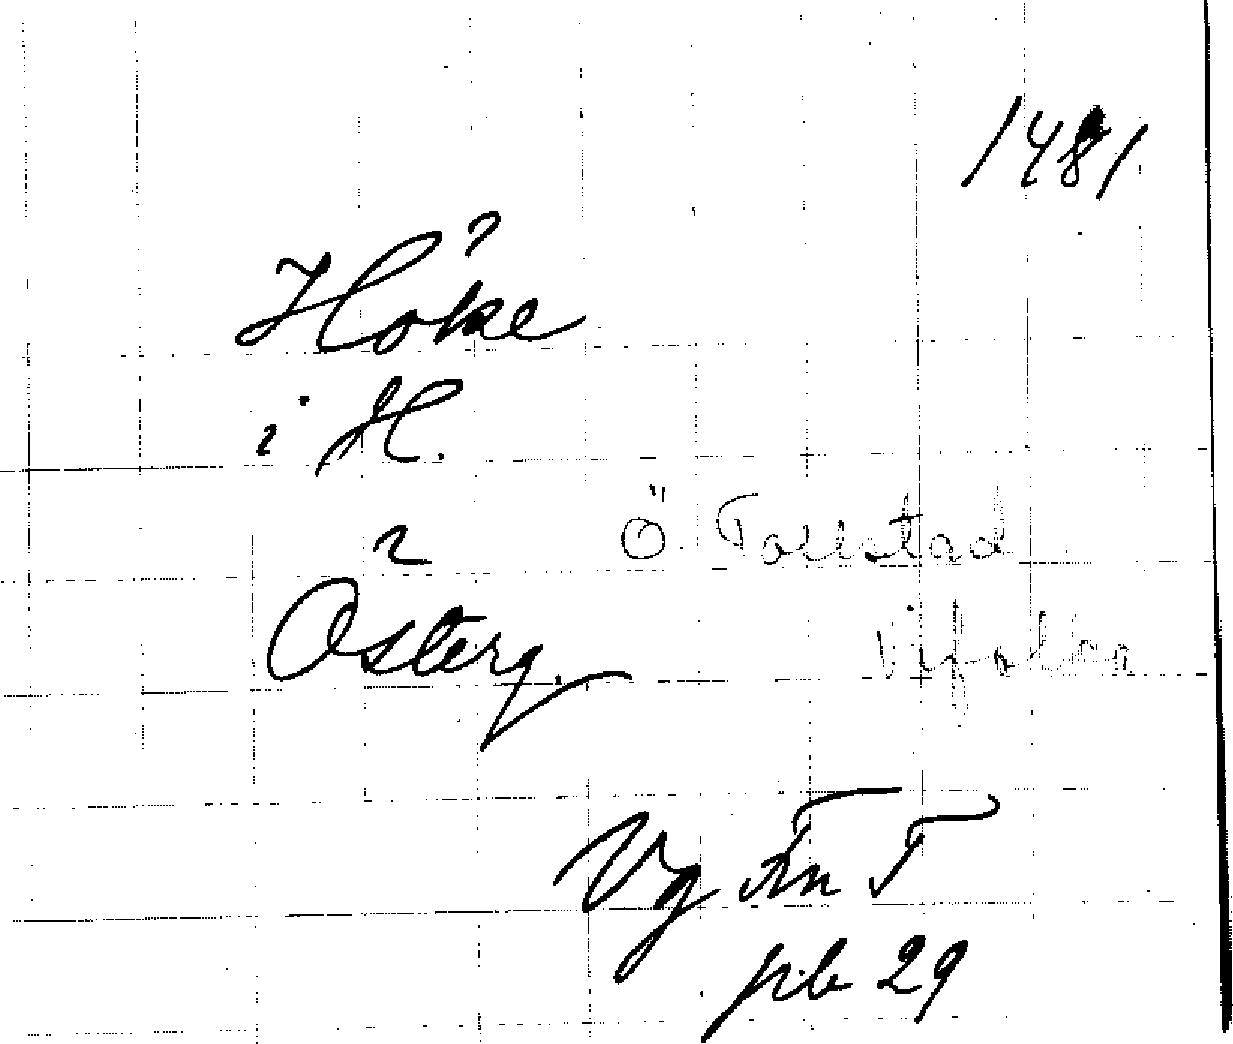 1481
Höke
i H.
Österg.
Ö. Tollstad
Vifolka
Vg Fn T
pb 29